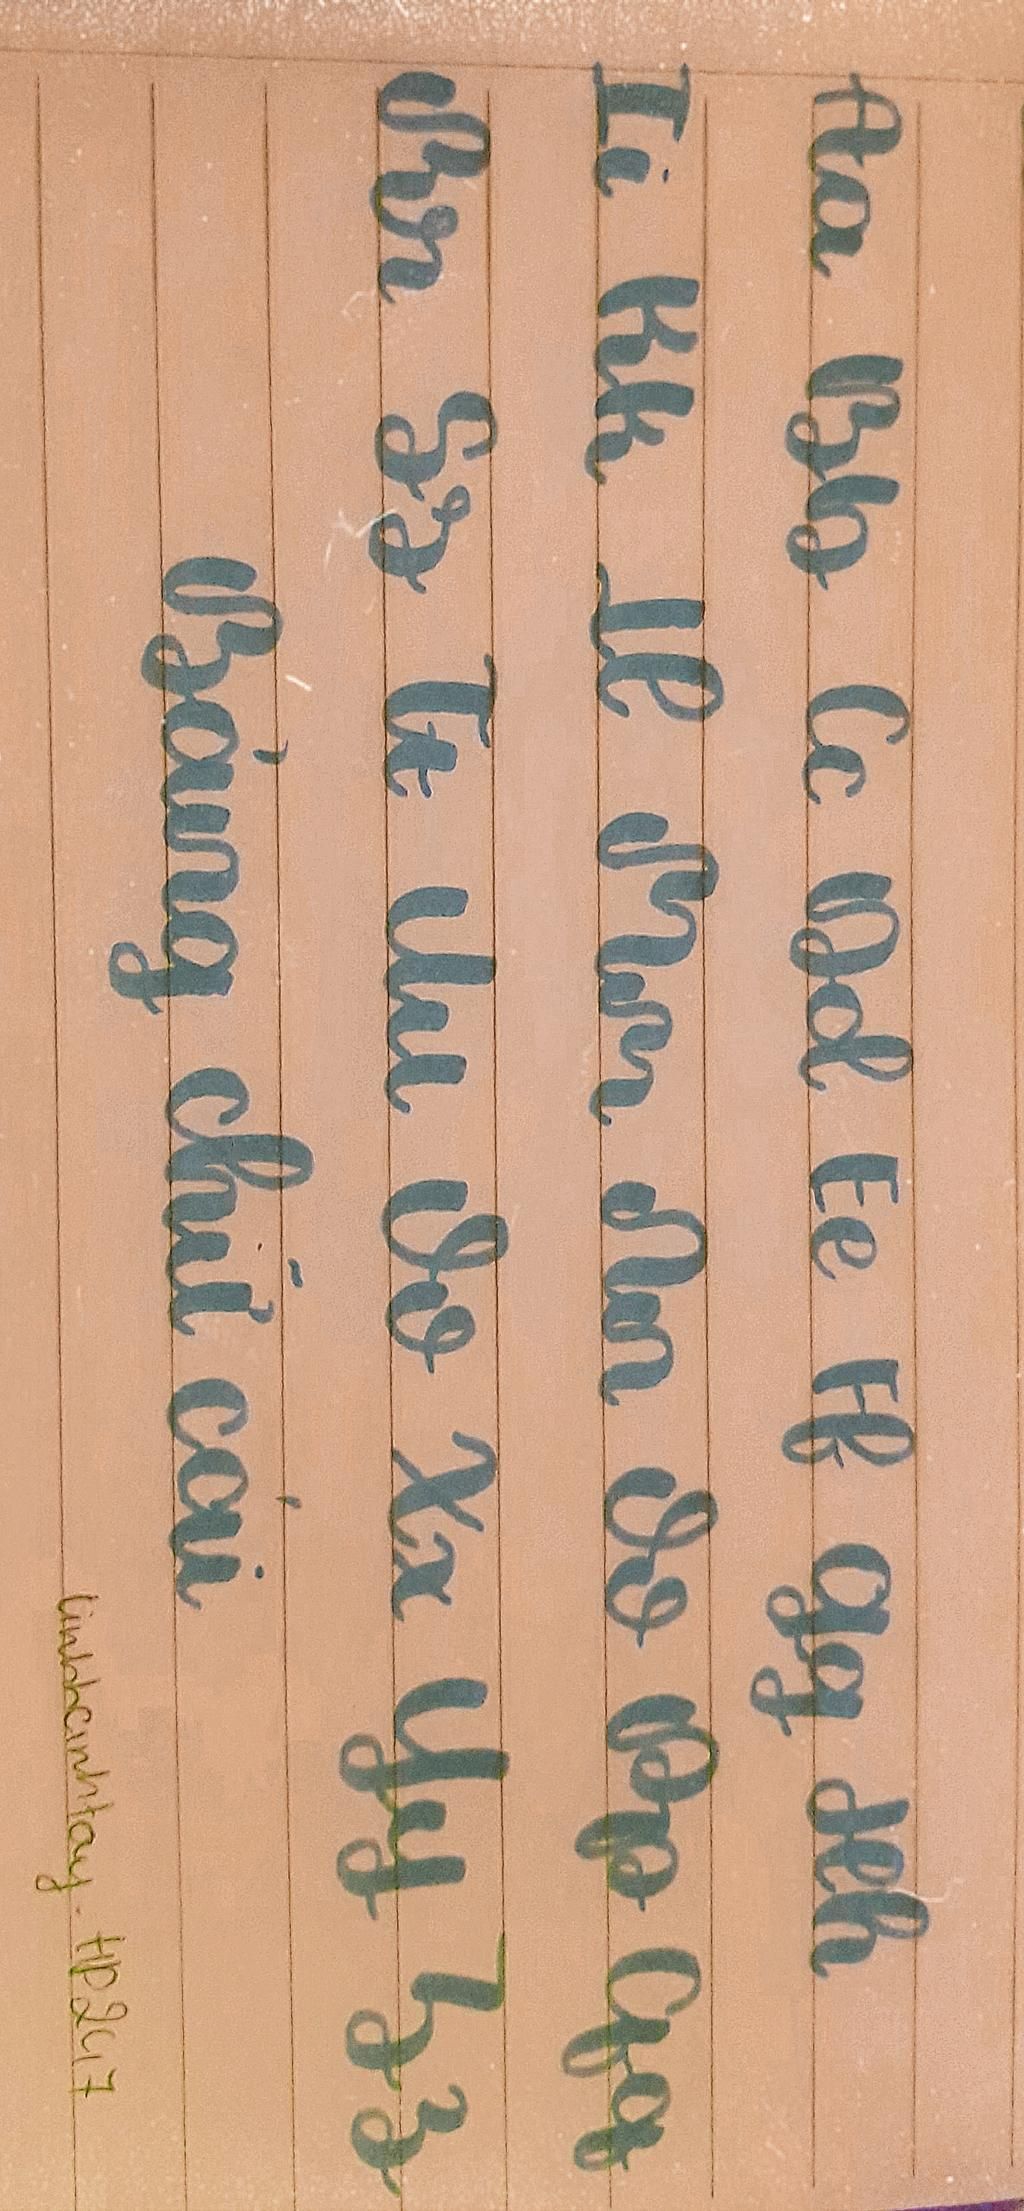 Aa Bb Cc Dd Ee Ff Gg Hh
Ii Kk Ll Mm Nn Oo Pp Qq
Rr Ss Tt Uu Vv Xx Yy Zz
Bảng chữ cái
HP247